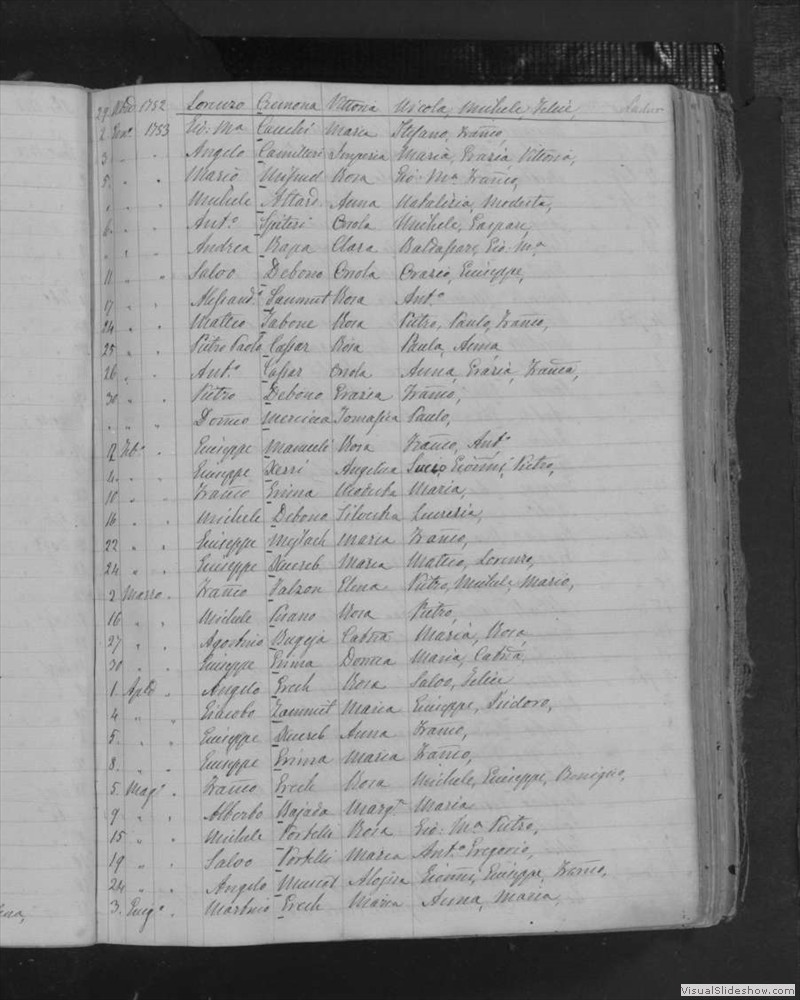 29 1752 Lorenzo Cremona Vittoria Nicola, Michele, Felice,
2 1753 Gio: Mᵃ Maria Stefano, Franco,
3 " " Angelo Camilleri Imperia Maria, Grazia Vittoria,
5 " " Mario Mifsud Rosa Gio: Mᵃ Franco,
" " " Michele Attard Anna Natalizia, Modesta,
6 " " Antº Spiteri Orsola Michele, Gaspare,
" " " Andrea Clara Baldassare, Gio: Mᵃ
11 " " Salvo Debono Orsola Orazio, Giuseppe,
17 " " Alessandº Sammut Rosa Antº
24 " " Matteo Tabone Rosa Pietro, Paulo, Franco,
25 " " Pietro Paolo Cassar Rosa Paula, Anna
26 " " Antº Cassar Orsola Anna, Grazia, Franca,
30 " " Pietro Debono Grazia Franco,
" " " Domco Mercieca Tomasina Paulo,
2 Febº " Giuseppe Manueli Rosa Franco, Antº
4 " " Giuseppe Xerri Angelica Lucio, Gionni, Pietro,
10 " " Franco Grima Modesta Maria,
16 " " Michele Debono Silvestra Lucrezia,
22 " " Giuseppe Maria Franco,
24 " " Giuseppe Xuereb Maria Matteo, Lorenzo,
2 Marzo " Franco Falzon Elena Pietro, Michele, Mario,
16 " " Michele Pisano Rosa Pietro,
27 " " Agostino Bugeja Catna Maria, Rosa,
30 " " Giuseppe Grima Domca Maria, Catna,
1 Aple " Angelo Grech Rosa Salvo, Felice
4 " " Giacobo Zammit Maria Giuseppe, Isidoro,
5 " " Giuseppe Xuereb Anna Franco,
8 " " Giuseppe Grima Maria Franco,
5 Magº " Franco Grech Rosa Michele, Giuseppe, Benigno,
9 " " Alberto Bajada Margᵗᵃ Maria
15 " " Michele Portelli Rosa Gio: Mᵃ Pietro,
19 " " Salvo Portelli Maria Antº Gregorio,
24 " " Angelo Muscat Aloisia Gionni, Giuseppe, Franco,
3 Giugº " Martino Grech Maria Anna, Maria,
VisualSlideshow.com